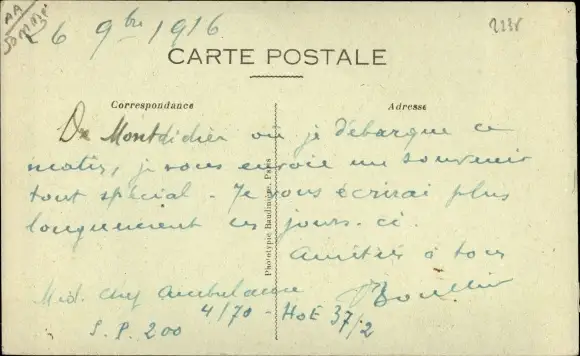 26 9bre 1916
2238
CARTE POSTALE
Correspondance
Adresse
De Montdidier où je débarque ce
matin, je vous envoie un souvenir
tout spécial - Je vous écrirai plus
longuement ces jours-ci.
Amitiés à tous
Med. chef Ambulance
4/70 - HoE 37/2
S.P. 200
Phototypie Baudinière, Paris